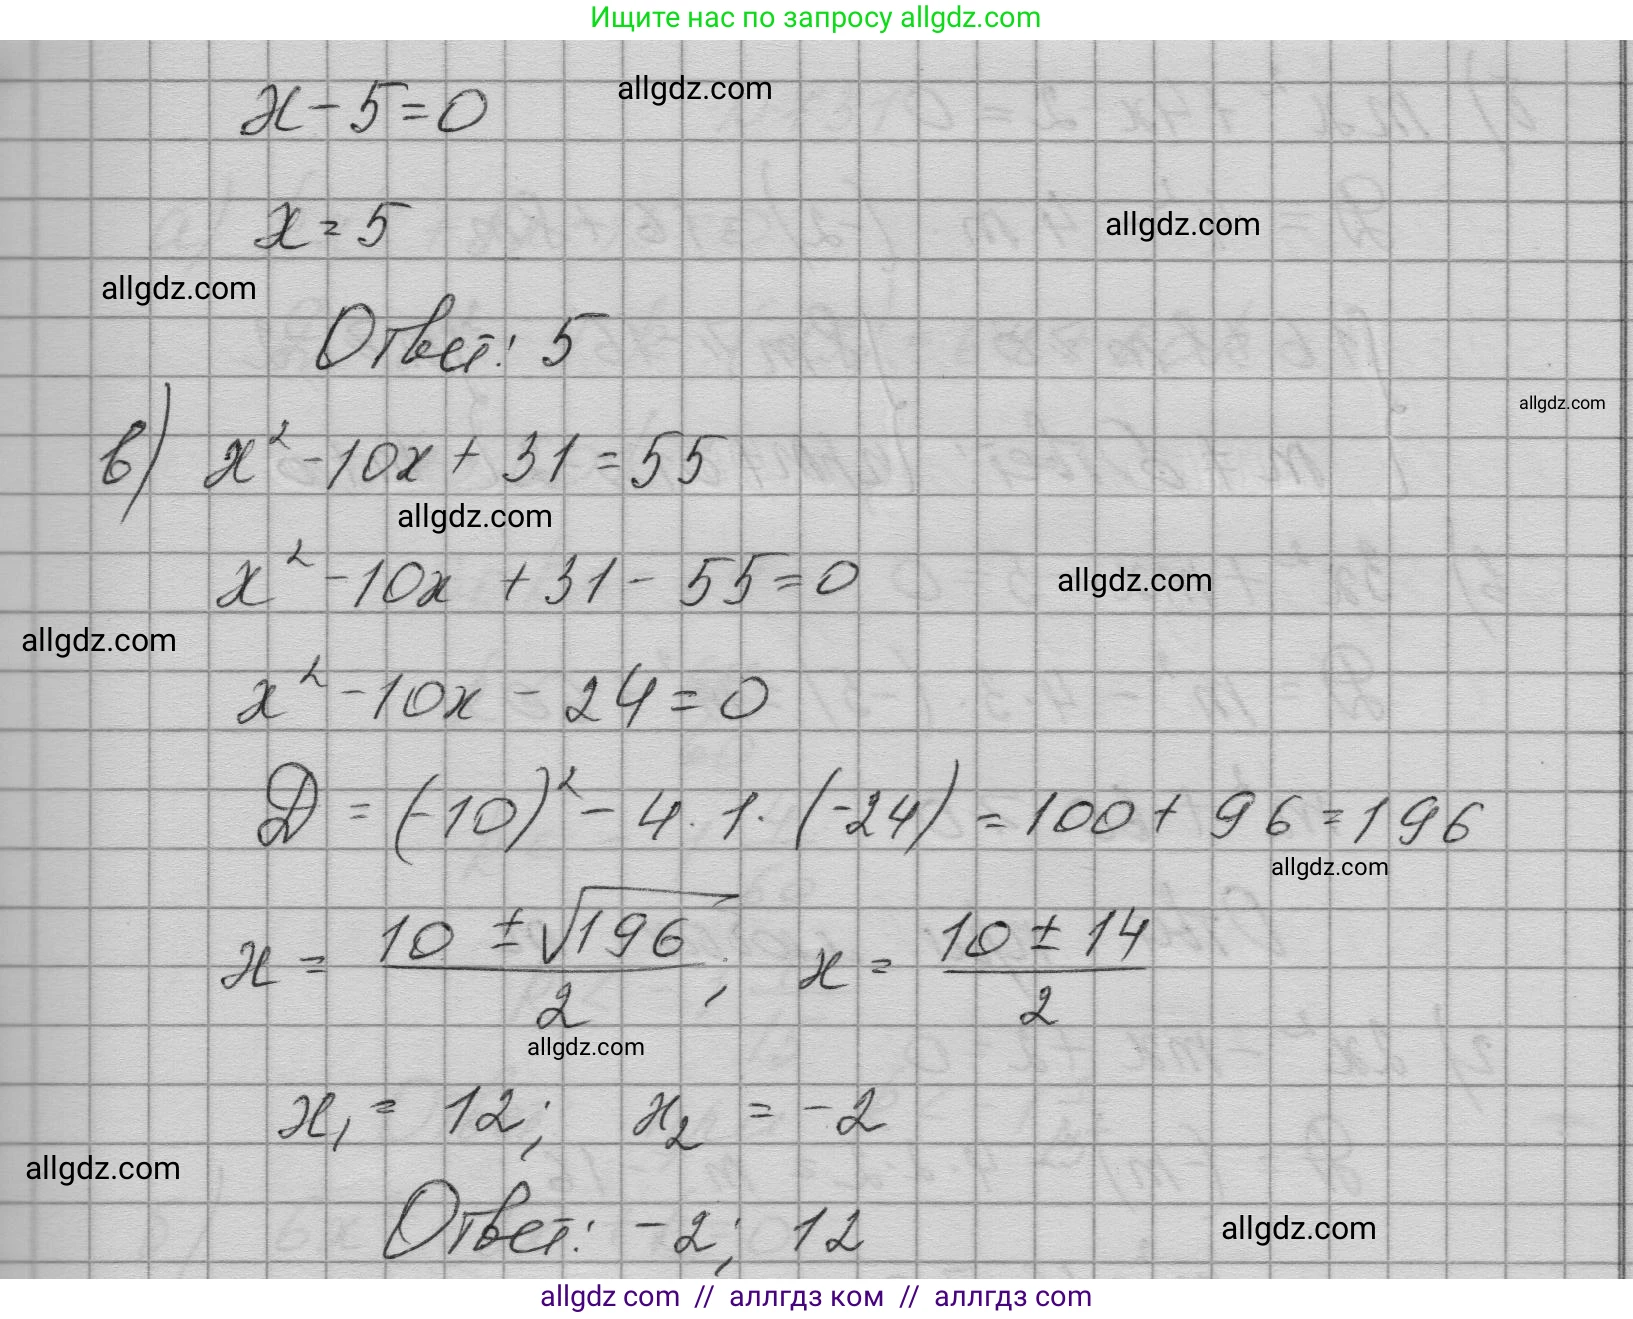 Ищите нас по запросу allgdz.com
x - 5 = 0
allgdz.com
x = 5
allgdz.com
allgdz.com
Ответ: 5
allgdz.com
в) x² - 10x + 31 = 55
allgdz.com
x² - 10x + 31 - 55 = 0
allgdz.com
allgdz.com
x² - 10x - 24 = 0
D = (-10)² - 4 · 1 · (-24) = 100 + 96 = 196
allgdz.com
x = (10 ± √196)/2 ; x = (10 ± 14)/2
allgdz.com
x₁ = 12; x₂ = -2
allgdz.com
Ответ: -2; 12
allgdz.com
allgdz com // аллгдз ком // аллгдз com